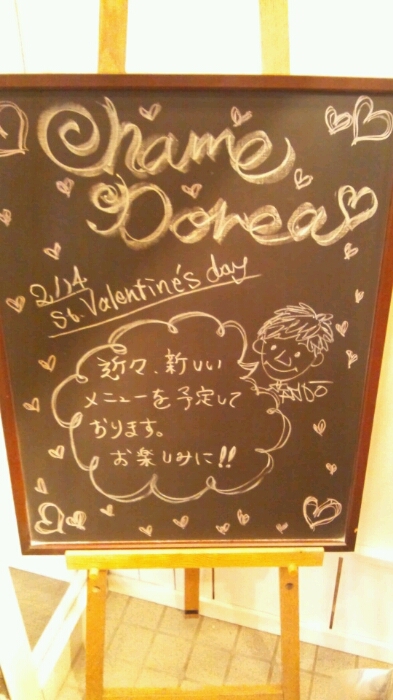 Chame
Dorea
2/14
St. Valentine's day
近々、新しい
メニューを予定して
おります。
お楽しみに!!
ANDO